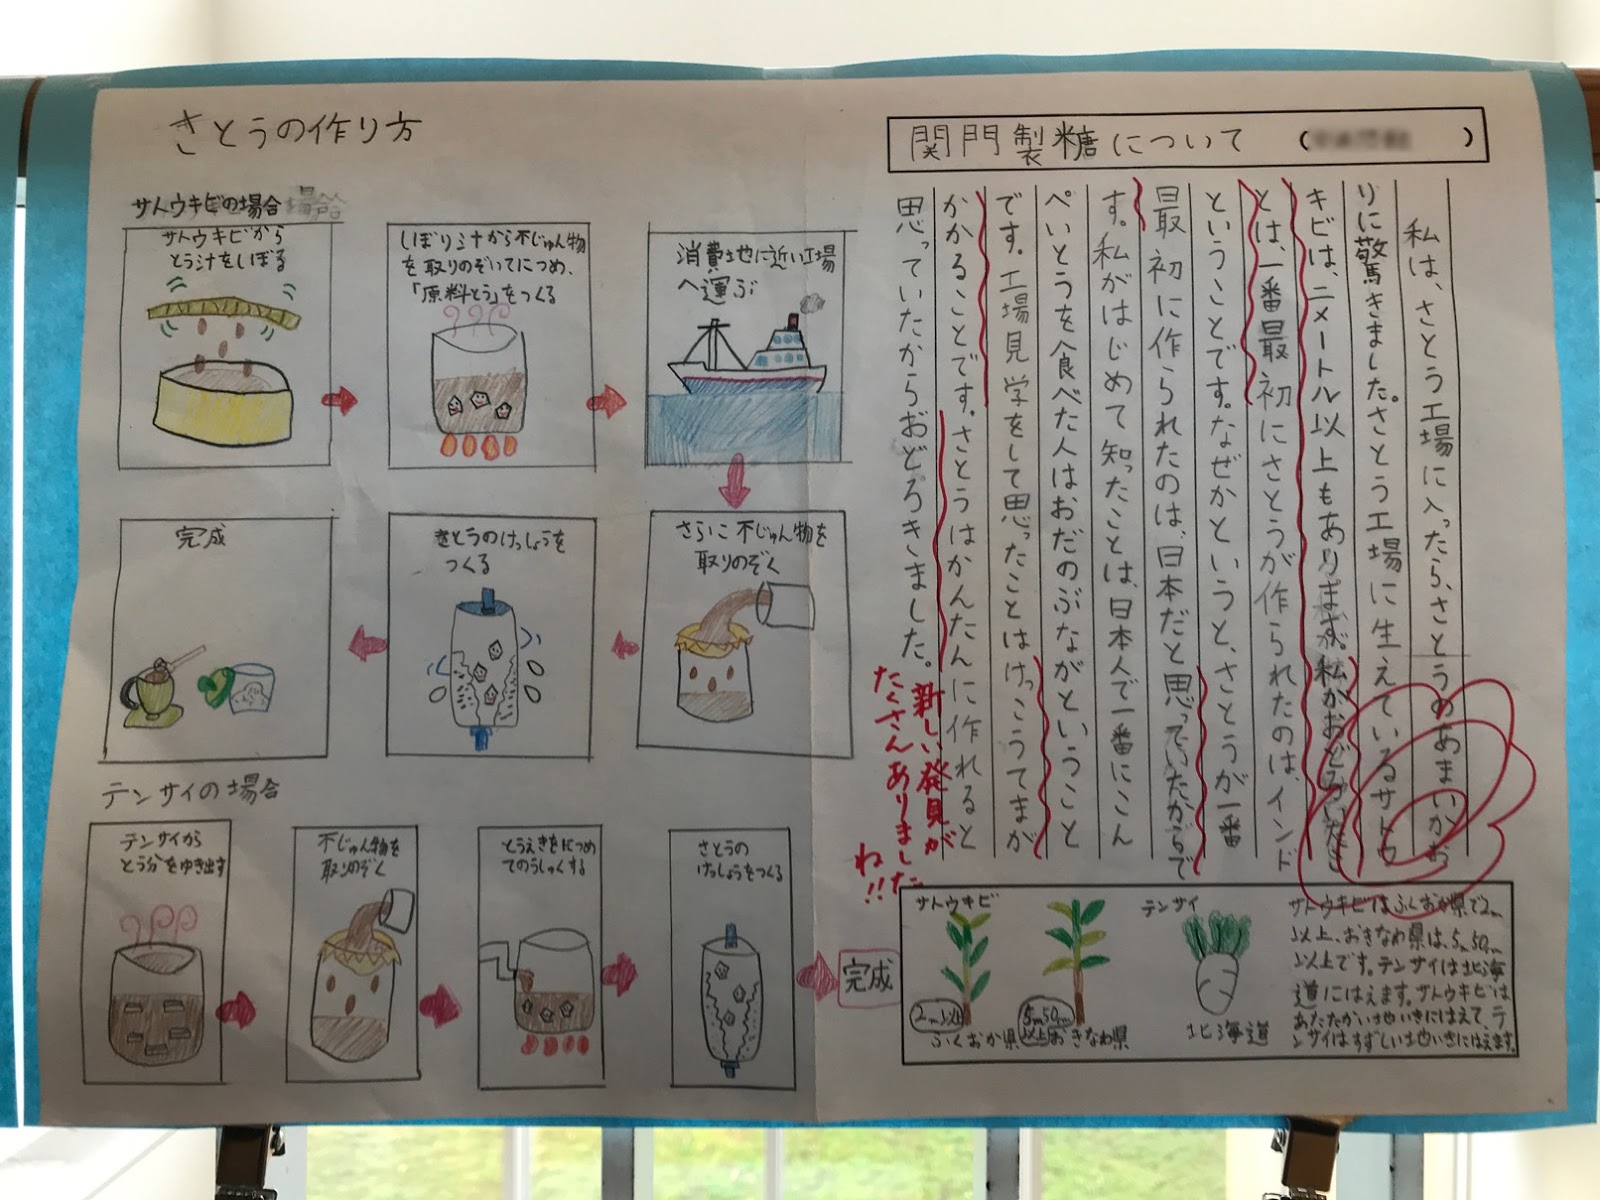 さとうの作り方
サトウキビの場合
サトウキビから
とう汁をしぼる
しぼり汁から不じゅん物
を取りのぞいてにつめ、
「原料とう」をつくる
消費地に近い工場
へ運ぶ
さらに不じゅん物を
取りのぞく
さとうのけっしょうを
つくる
完成
テンサイの場合
テンサイから
とう分をゆき出す
不じゅん物を
取りのぞく
とうえきをにつめ
てのうしゅくする
さとうの
けっしょうをつくる
完成
関門製糖について
私は、さとう工場に入ったら、さとうのあまいかお
りに驚きました。さとう工場に生えているサトウ
キビは、ニメートル以上もあります。私がおどろいたこ
とは、一番最初にさとうが作られたのは、インド
ということです。なぜかというと、さとうが一番
最初に作られたのは、日本だと思っていたからで
す。私がはじめて知ったことは、日本人で一番にこん
ぺいとうを食べた人はおだのぶながということ
です。工場見学をして思ったことはけっこうてまが
かかることです。さとうはかんたんに作れると
思っていたからおどろきました。
新しい発見が
たくさんありました
ね!!
サトウキビ
2m以上
ふくおか県
5m50m
以上
おきなわ県
テンサイ
北海道
サトウキビはふくおか県で2m
以上、おきなわ県は、5m50m
以上です。テンサイは北海
道にはえます。サトウキビは
あたたかい地いきにはえて、テ
ンサイはすずしい地いきにはえます。